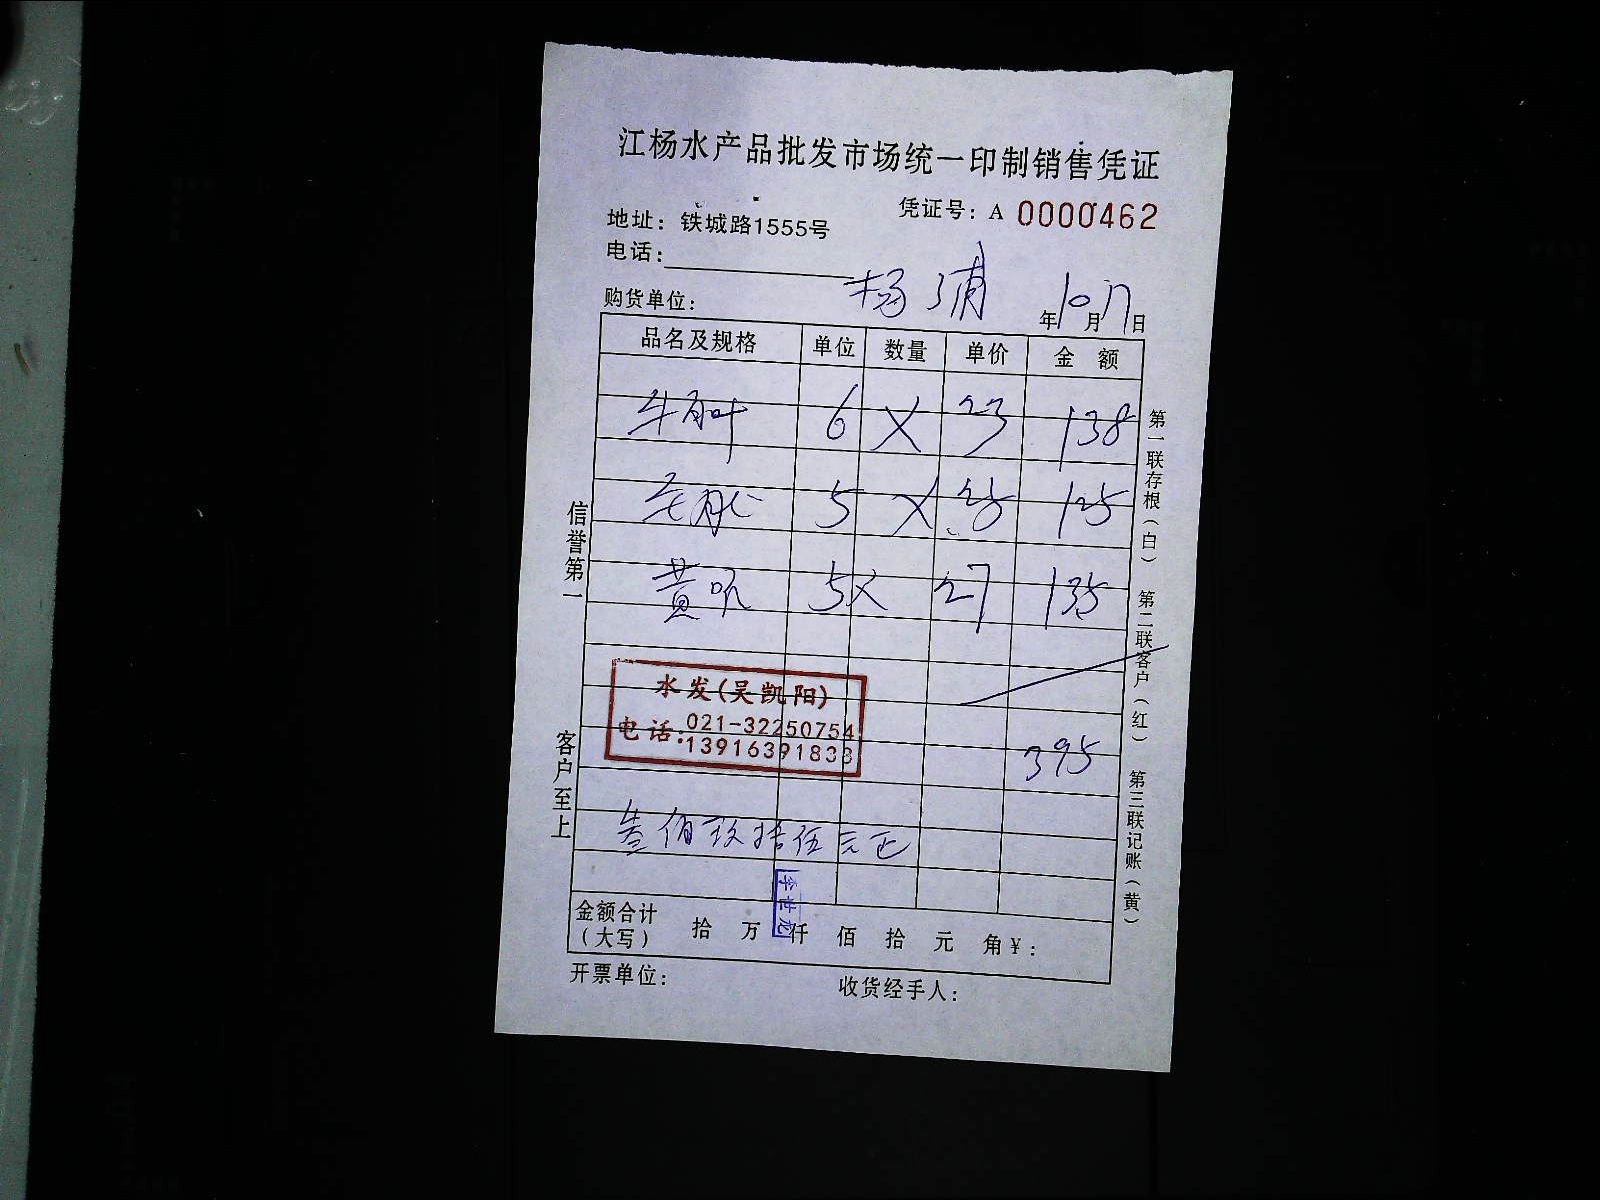 江杨水产品批发市场统一印制销售凭证
凭证号：A 0000462
地址：铁城路1555号
电话：
购货单位： 杨浦 年10月17日
品名及规格 单位 数量 单价 金 额
牛百叶 6 X 23 138
毛 5 X 25 125
黄 5 X 27 135
水发(吴凯阳)
电话:021-32250754
13916391838
395
叁佰玖拾伍元正
李世龙
金额合计（大写） 拾 万 仟 佰 拾 元 角￥：
开票单位： 收货经手人：
信誉第一
客户至上
第一联存根（白） 第二联客户（红） 第三联记账（黄）